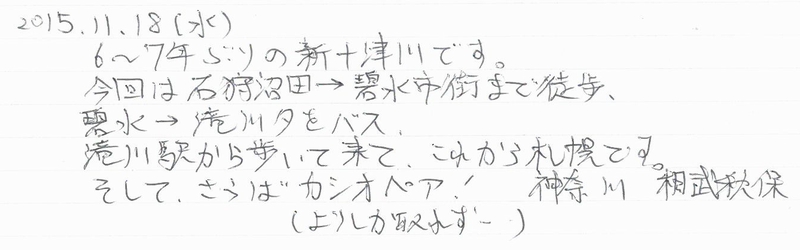 2015.11.18(水)
6〜7年ぶりの新十津川です。
今回は石狩沼田→碧水市街まで徒歩、
碧水→滝川タをバス、
滝川駅から歩いて来て、これから札幌です。
そして、さらばカシオペア! 神奈川 相武秋保
(よりしか取れず…)